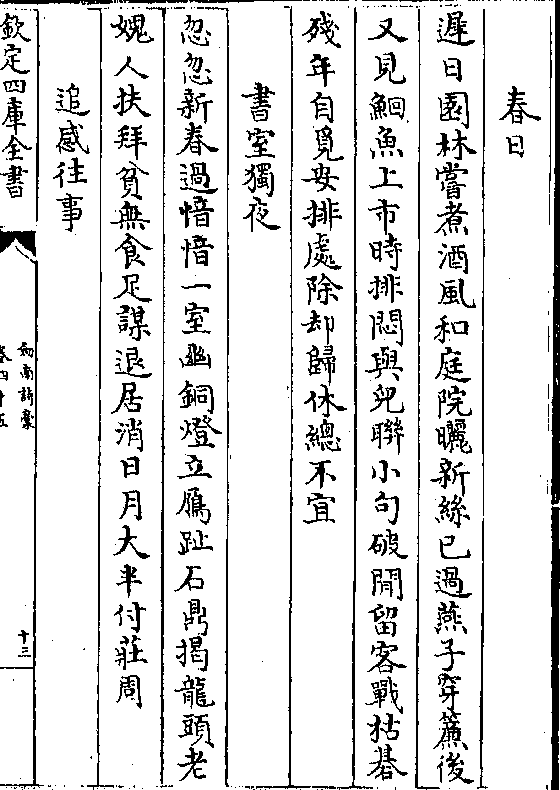 春日
遲日園林嘗煮酒風和庭院曬新絲已過燕子穿簾後
又見鮰魚上市時排悶與兒聯小句破閒留客戰枯碁
殘年自覓安排處除却歸休總不宜
書室獨夜
忽忽新春過愔愔一室幽銅燈立鴈趾石鼎揭龍頭老
媿人扶拜貧無食足謀退居消日月大半付莊周
追感往事
欽定四庫全書
劍南詩稾
卷四十五
十三